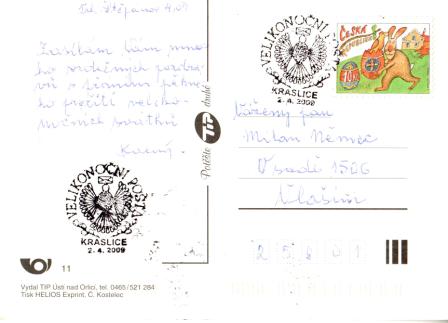 Štěpánov 4.09
Zasílám Vám mno-
ho srdečných pozdra-
vů s přáním pěkné-
ho prožití veliko-
nočních svátků
VELIKONOČNÍ POŠTA
KRASLICE
2. 4. 2009
VELIKONOČNÍ POŠTA
KRASLICE
2. 4. 2009
ČESKÁ
REPUBLIKA
Pošlete TIP druhé
Vážený pan
Milan Němec
V sadě 1506
Vlašim
2 5 8 0 1
11
Vydal TIP Ústí nad Orlicí, tel. 0465/521 284
Tisk HELIOS Exprint, Č. Kostelec